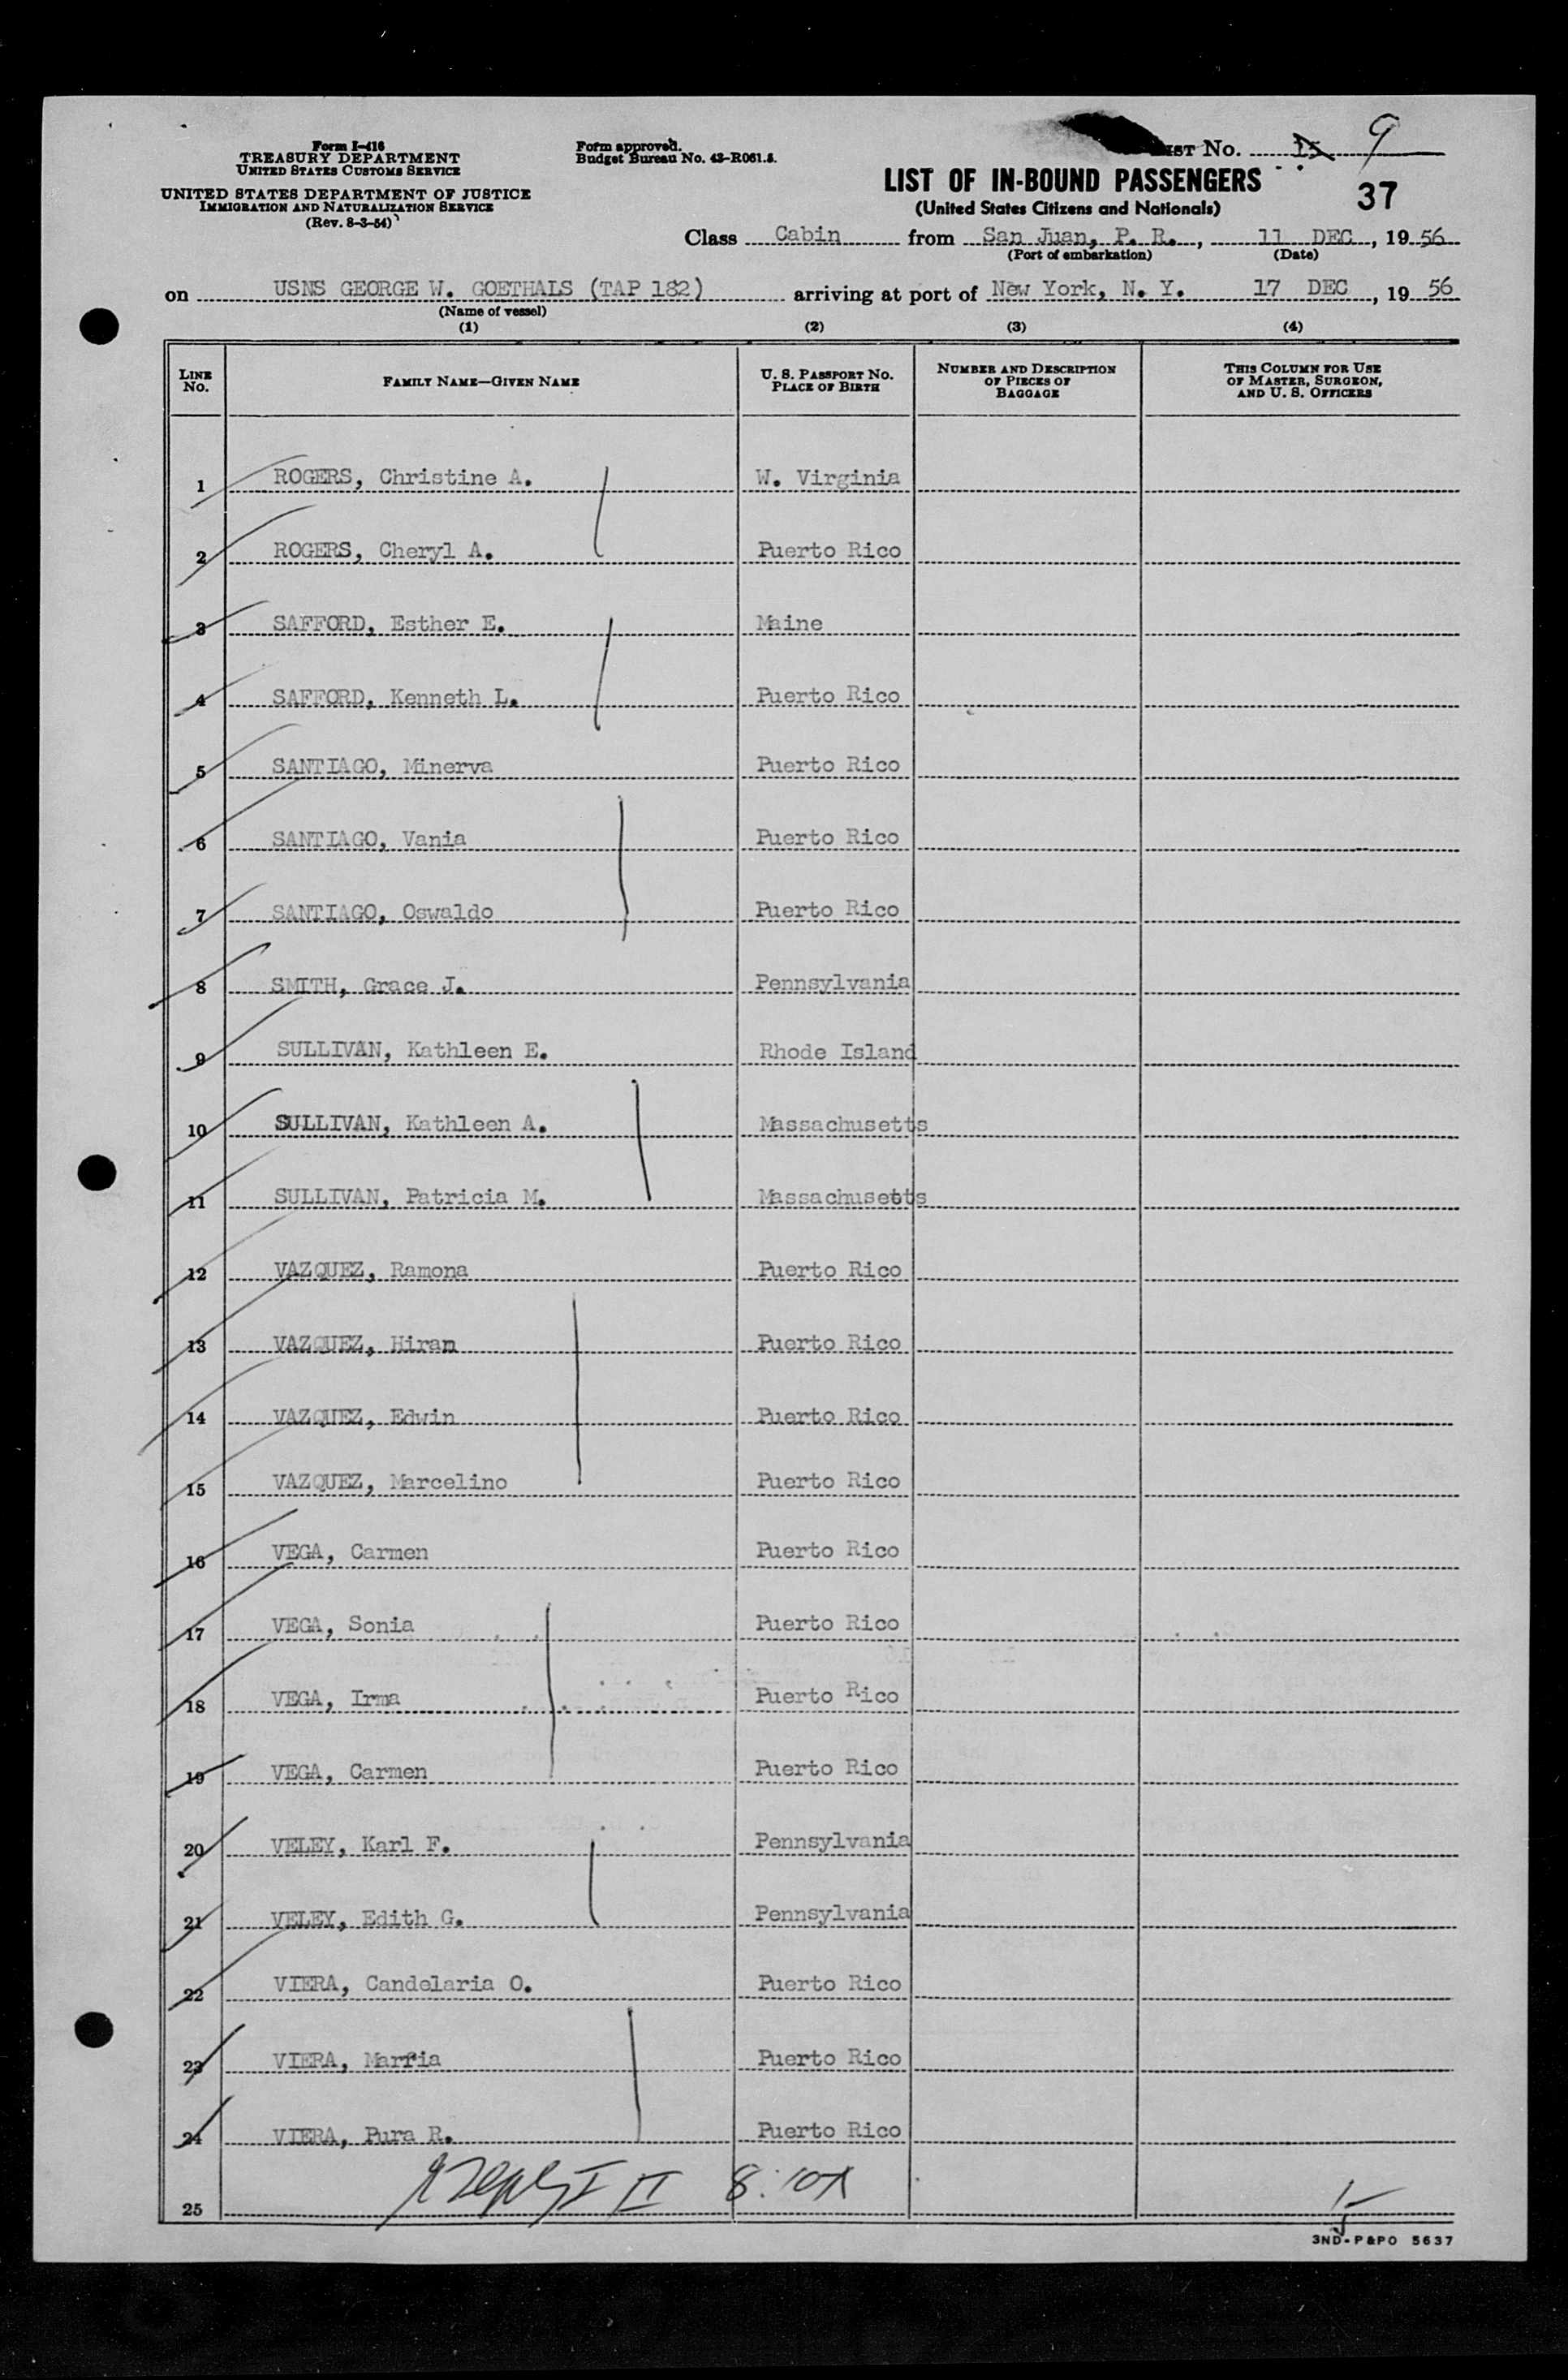 Form I-416
TREASURY DEPARTMENT
UNITED STATES CUSTOMS SERVICE
UNITED STATES DEPARTMENT OF JUSTICE
IMMIGRATION AND NATURALIZATION SERVICE
(Rev. 8-3-54)
Form approved.
Budget Bureau No. 43-R061.5.
LIST No. 15 9
LIST OF IN-BOUND PASSENGERS
(United States Citizens and Nationals)
37
Class Cabin from San Juan, P. R., 11 DEC, 1956
(Port of embarkation) (Date)
on USNS GEORGE W. GOETHALS (TAP 182) arriving at port of New York, N. Y. 17 DEC, 1956
(Name of vessel)
(1) (2) (3) (4)
LINE No. FAMILY NAME—GIVEN NAME U. S. PASSPORT No. PLACE OF BIRTH NUMBER AND DESCRIPTION OF PIECES OF BAGGAGE THIS COLUMN FOR USE OF MASTER, SURGEON, AND U. S. OFFICERS
1 ROGERS, Christine A. W. Virginia
2 ROGERS, Cheryl A. Puerto Rico
3 SAFFORD, Esther E. Maine
4 SAFFORD, Kenneth L. Puerto Rico
5 SANTIAGO, Minerva Puerto Rico
6 SANTIAGO, Vania Puerto Rico
7 SANTIAGO, Oswaldo Puerto Rico
8 SMITH, Grace J. Pennsylvania
9 SULLIVAN, Kathleen E. Rhode Island
10 SULLIVAN, Kathleen A. Massachusetts
11 SULLIVAN, Patricia M. Massachusetts
12 VAZQUEZ, Ramona Puerto Rico
13 VAZQUEZ, Hiram Puerto Rico
14 VAZQUEZ, Edwin Puerto Rico
15 VAZQUEZ, Marcelino Puerto Rico
16 VEGA, Carmen Puerto Rico
17 VEGA, Sonia Puerto Rico
18 VEGA, Irma Puerto Rico
19 VEGA, Carmen Puerto Rico
20 VELEY, Karl F. Pennsylvania
21 VELEY, Edith G. Pennsylvania
22 VIERA, Candelaria O. Puerto Rico
23 VIERA, Marfia Puerto Rico
24 VIERA, Pura R. Puerto Rico
25
3ND-P&PO 5637